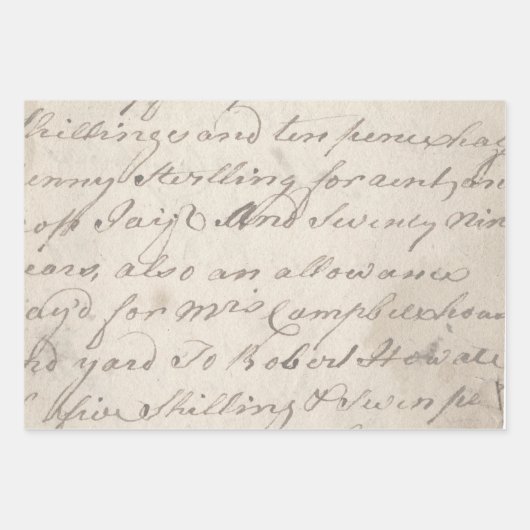 hillings and ten pence hay
enny Sterling for aent, an
And Seventy nin
ears, also an allowance
ay'd for Mrs Campbels hou
nd yard To Robert Howate
five Shilling & Seven pe